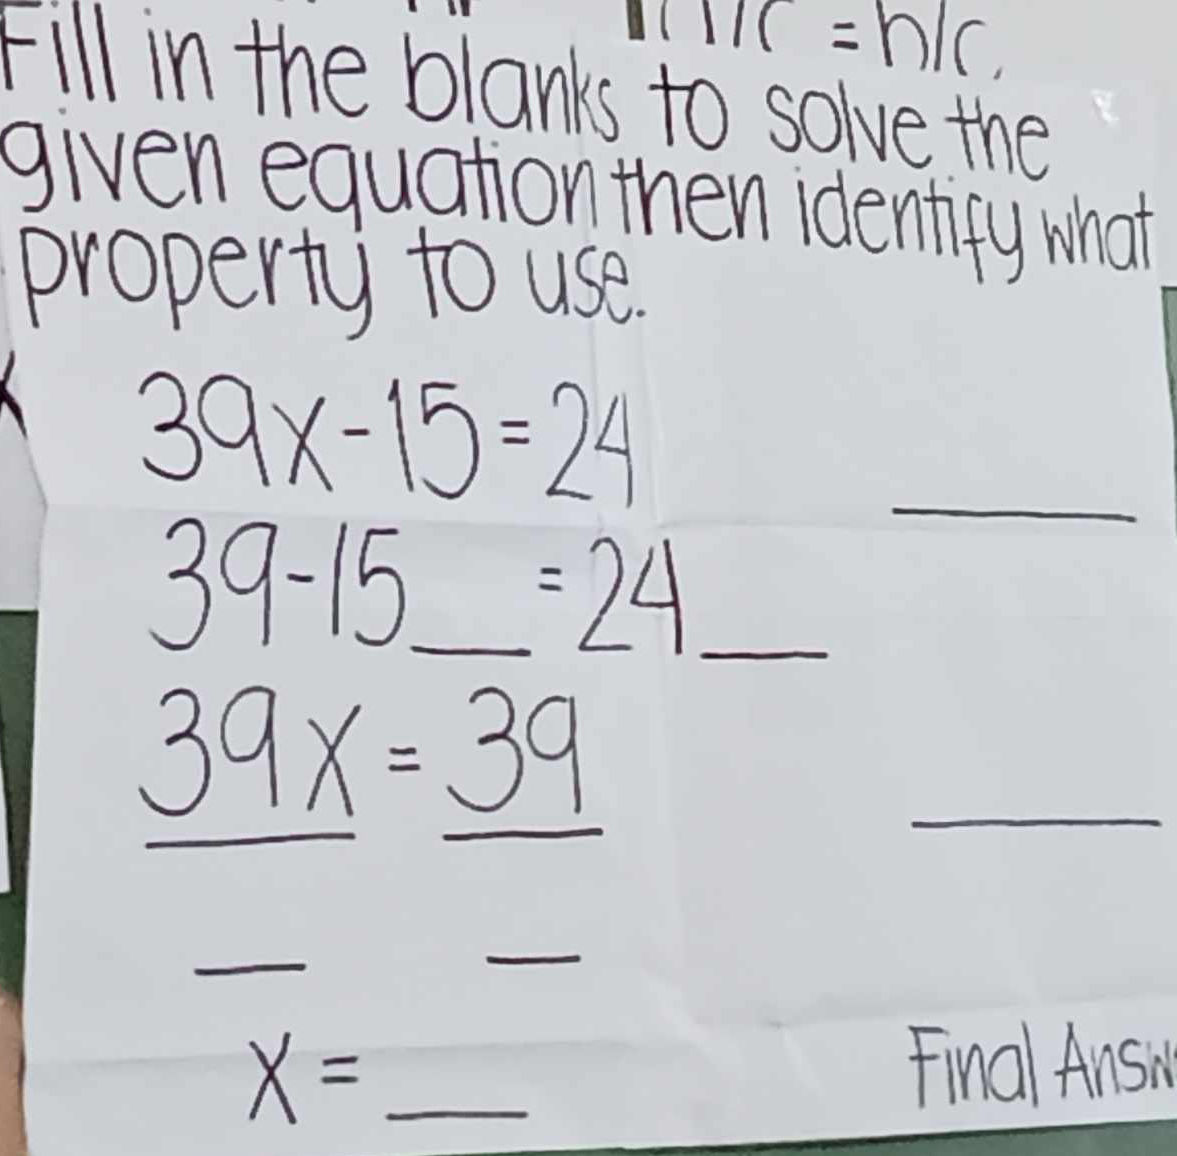 = b/c.
Fill in the blanks to solve the
given equation then identify what
property to use.
39x-15=24 ____
39-15____=24____
39x = 39 ____
__ __
x=____ Final Answ